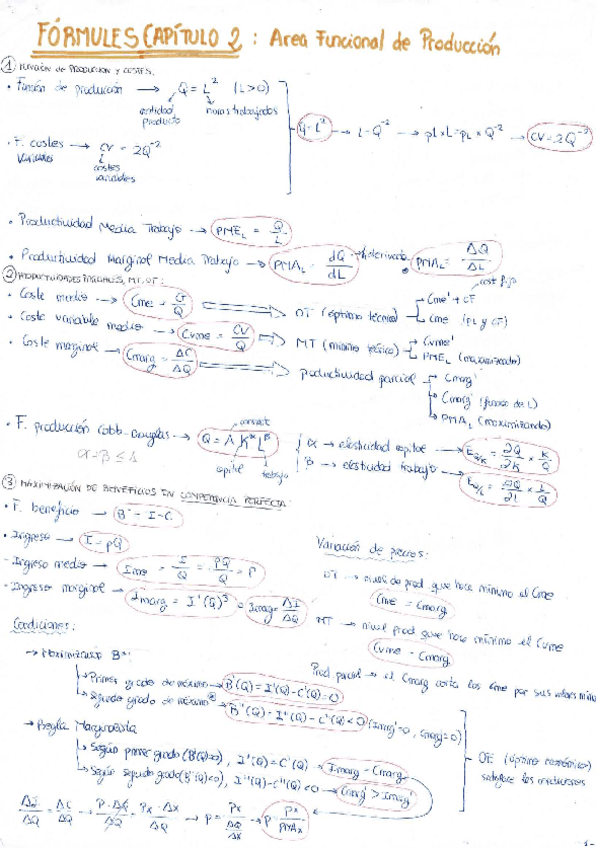 FÓRMULES CAPÍTULO 2 : Area Funcional de Producción
① FUNCIÓN de PRODUCCIÓN Y COSTES.
• Función de producción → Q = L² (L>0)
cantidad producto
horas trabajadas
Q = L² → L = Q⁻² → pL × L = pL × Q⁻² → CV = 2Q⁻²
• F. costes variables → CV = 2Q⁻²
costes variables
• Productividad Media Trabajo → PME_L = Q/L
• Productividad Marginal Media Trabajo → PMA_L = dQ/dL → PMA_L = ΔQ/ΔL
② PRODUCTIVIDADES PARCIALES, MT, OT:
cost fijo
• Coste medio → Cme = CT/Q ⇒ OT (óptimo técnico) → Cme' + CF
→ Cme (pL y CF)
• Coste variable medio → Cvme = CV/Q ⇒ MT (mínimo técnico) → Cvme'
→ PMEL (maximizando)
• Coste marginal → Cmarg = ΔC/ΔQ ⇒ productividad parcial → Cmarg'
→ Cmarg' (función de L)
→ PMA_L (maximizando)
• F. producción Cobb-Douglas → Q = A K^α L^β
α = β ≤ 1
capital
trabajo
α → elasticidad capital → E_Q/K = ∂Q/∂K × K/Q
β → elasticidad trabajo → E_Q/L = ∂Q/∂L × L/Q
③ MAXIMIZACIÓN DE BENEFICIOS EN COMPETENCIA PERFECTA:
• F. beneficio → B = I - C.
• Ingreso → I = pQ
- Ingreso medio → Ime = I/Q = pQ/Q = P
- Ingreso marginal → Imarg = I'(Q) = Imarg = ΔI/ΔQ
Variación de precios:
OT → nivel de prod. que hace mínimo el Cme
Cme = Cmarg
MT → nivel prod que hace mínimo el Cvme
Cvme = Cmarg
Prod. parcial → el Cmarg corta los Cme por sus valores
Condiciones:
→ Maximizar B:
→ Primer grado de máximo → B'(Q) = I'(Q) - C'(Q) = 0
→ Segundo grado de máximo → B''(Q) = I''(Q) - C''(Q) < 0
→ Regla Marginalista
→ Según primer grado (B'(Q)=0), I'(Q) = C'(Q) → Imarg = Cmarg
→ Según segundo grado (B''(Q)<0), I''(Q) - C''(Q) < 0 → Cmarg' > Imarg'
OE (óptimo económico)
satisface las
ΔI/ΔQ = ΔC/ΔQ → P·ΔQ/ΔQ = Px·Δx/ΔQ → P = Px/(ΔQ/Δx) → P = Px/PMAx